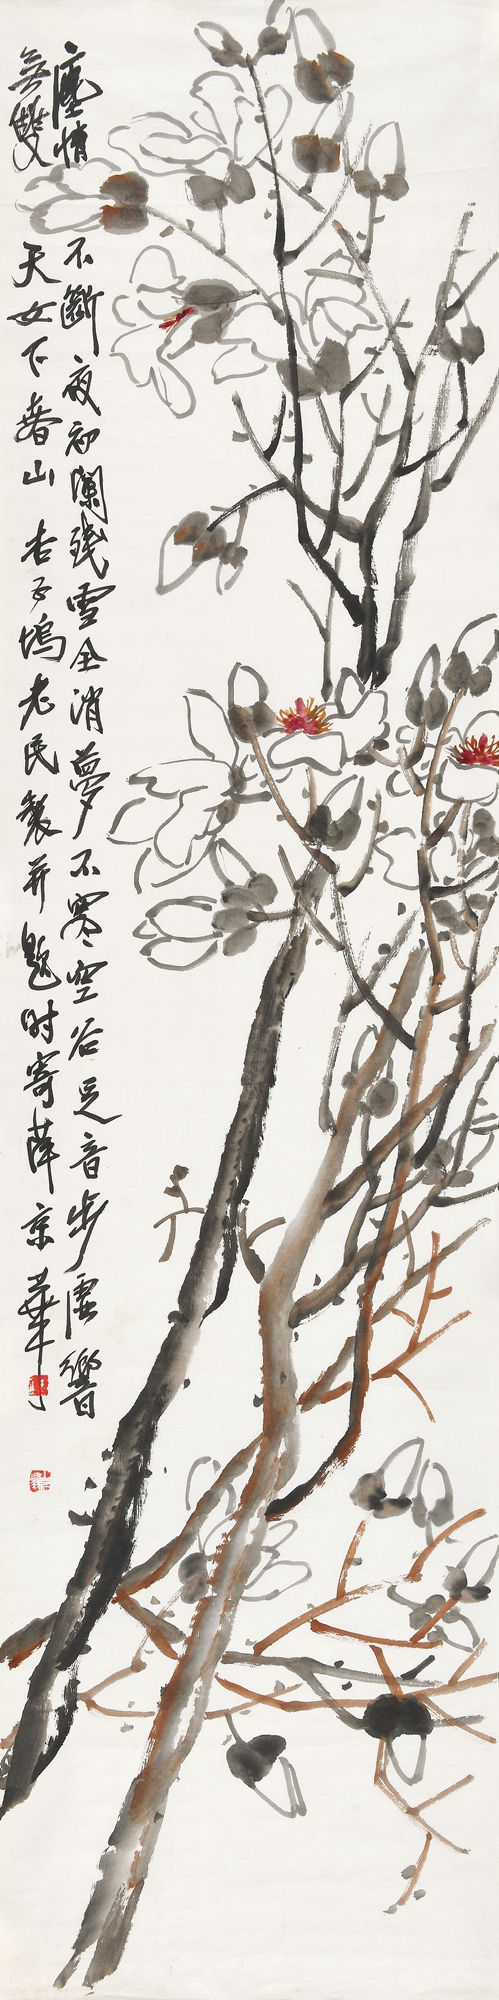 塵情不斷夜初闌殘雪全消夢不寒空谷足音步虛響
無雙天女下春山杏子塢老民製并題时寄萍京華